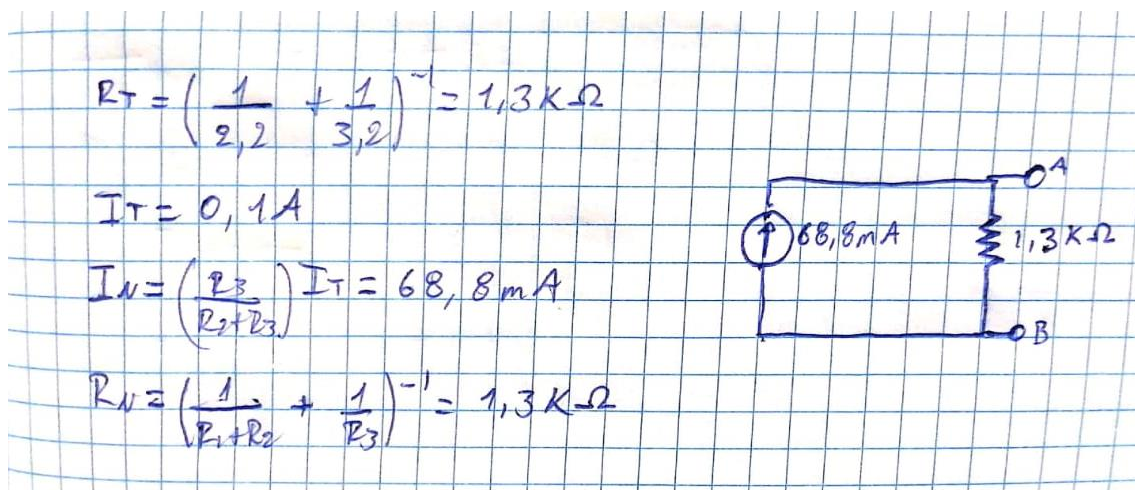 RT = (1/2,2 + 1/3,2)⁻¹ = 1,3 KΩ
IT = 0,1A
IN = (R3/R2+R3) IT = 68,8 mA
RN = (1/R1+R2 + 1/R3)⁻¹ = 1,3 KΩ
A
68,8mA
1,3 KΩ
B